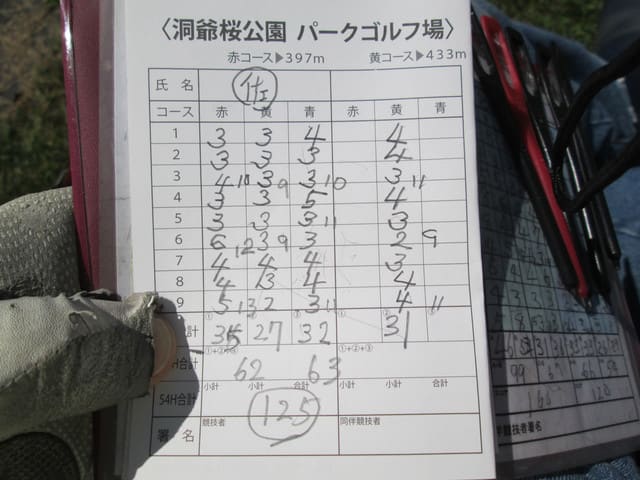 〈洞爺桜公園 パークゴルフ場〉
赤コース▶397m 黄コース▶433m
氏名 佐
コース 赤 黄 青 赤 黄 青
1 3 3 4 4
2 3 3 3 4
3 4 10 3 9 3 10 3 11
4 3 3 5 4
5 3 3 3 11 3
6 6 12 3 9 3 2 9
7 4 4 4 3
8 4 3 4 4
9 5 13 2 3 11 4 11
計 35 27 32 31
①+②+③ ①+②+③
H合計 62 63
小計 小計 合計 小計 小計 合計
54H合計 125
署名 競技者 同伴競技者
競技者署名